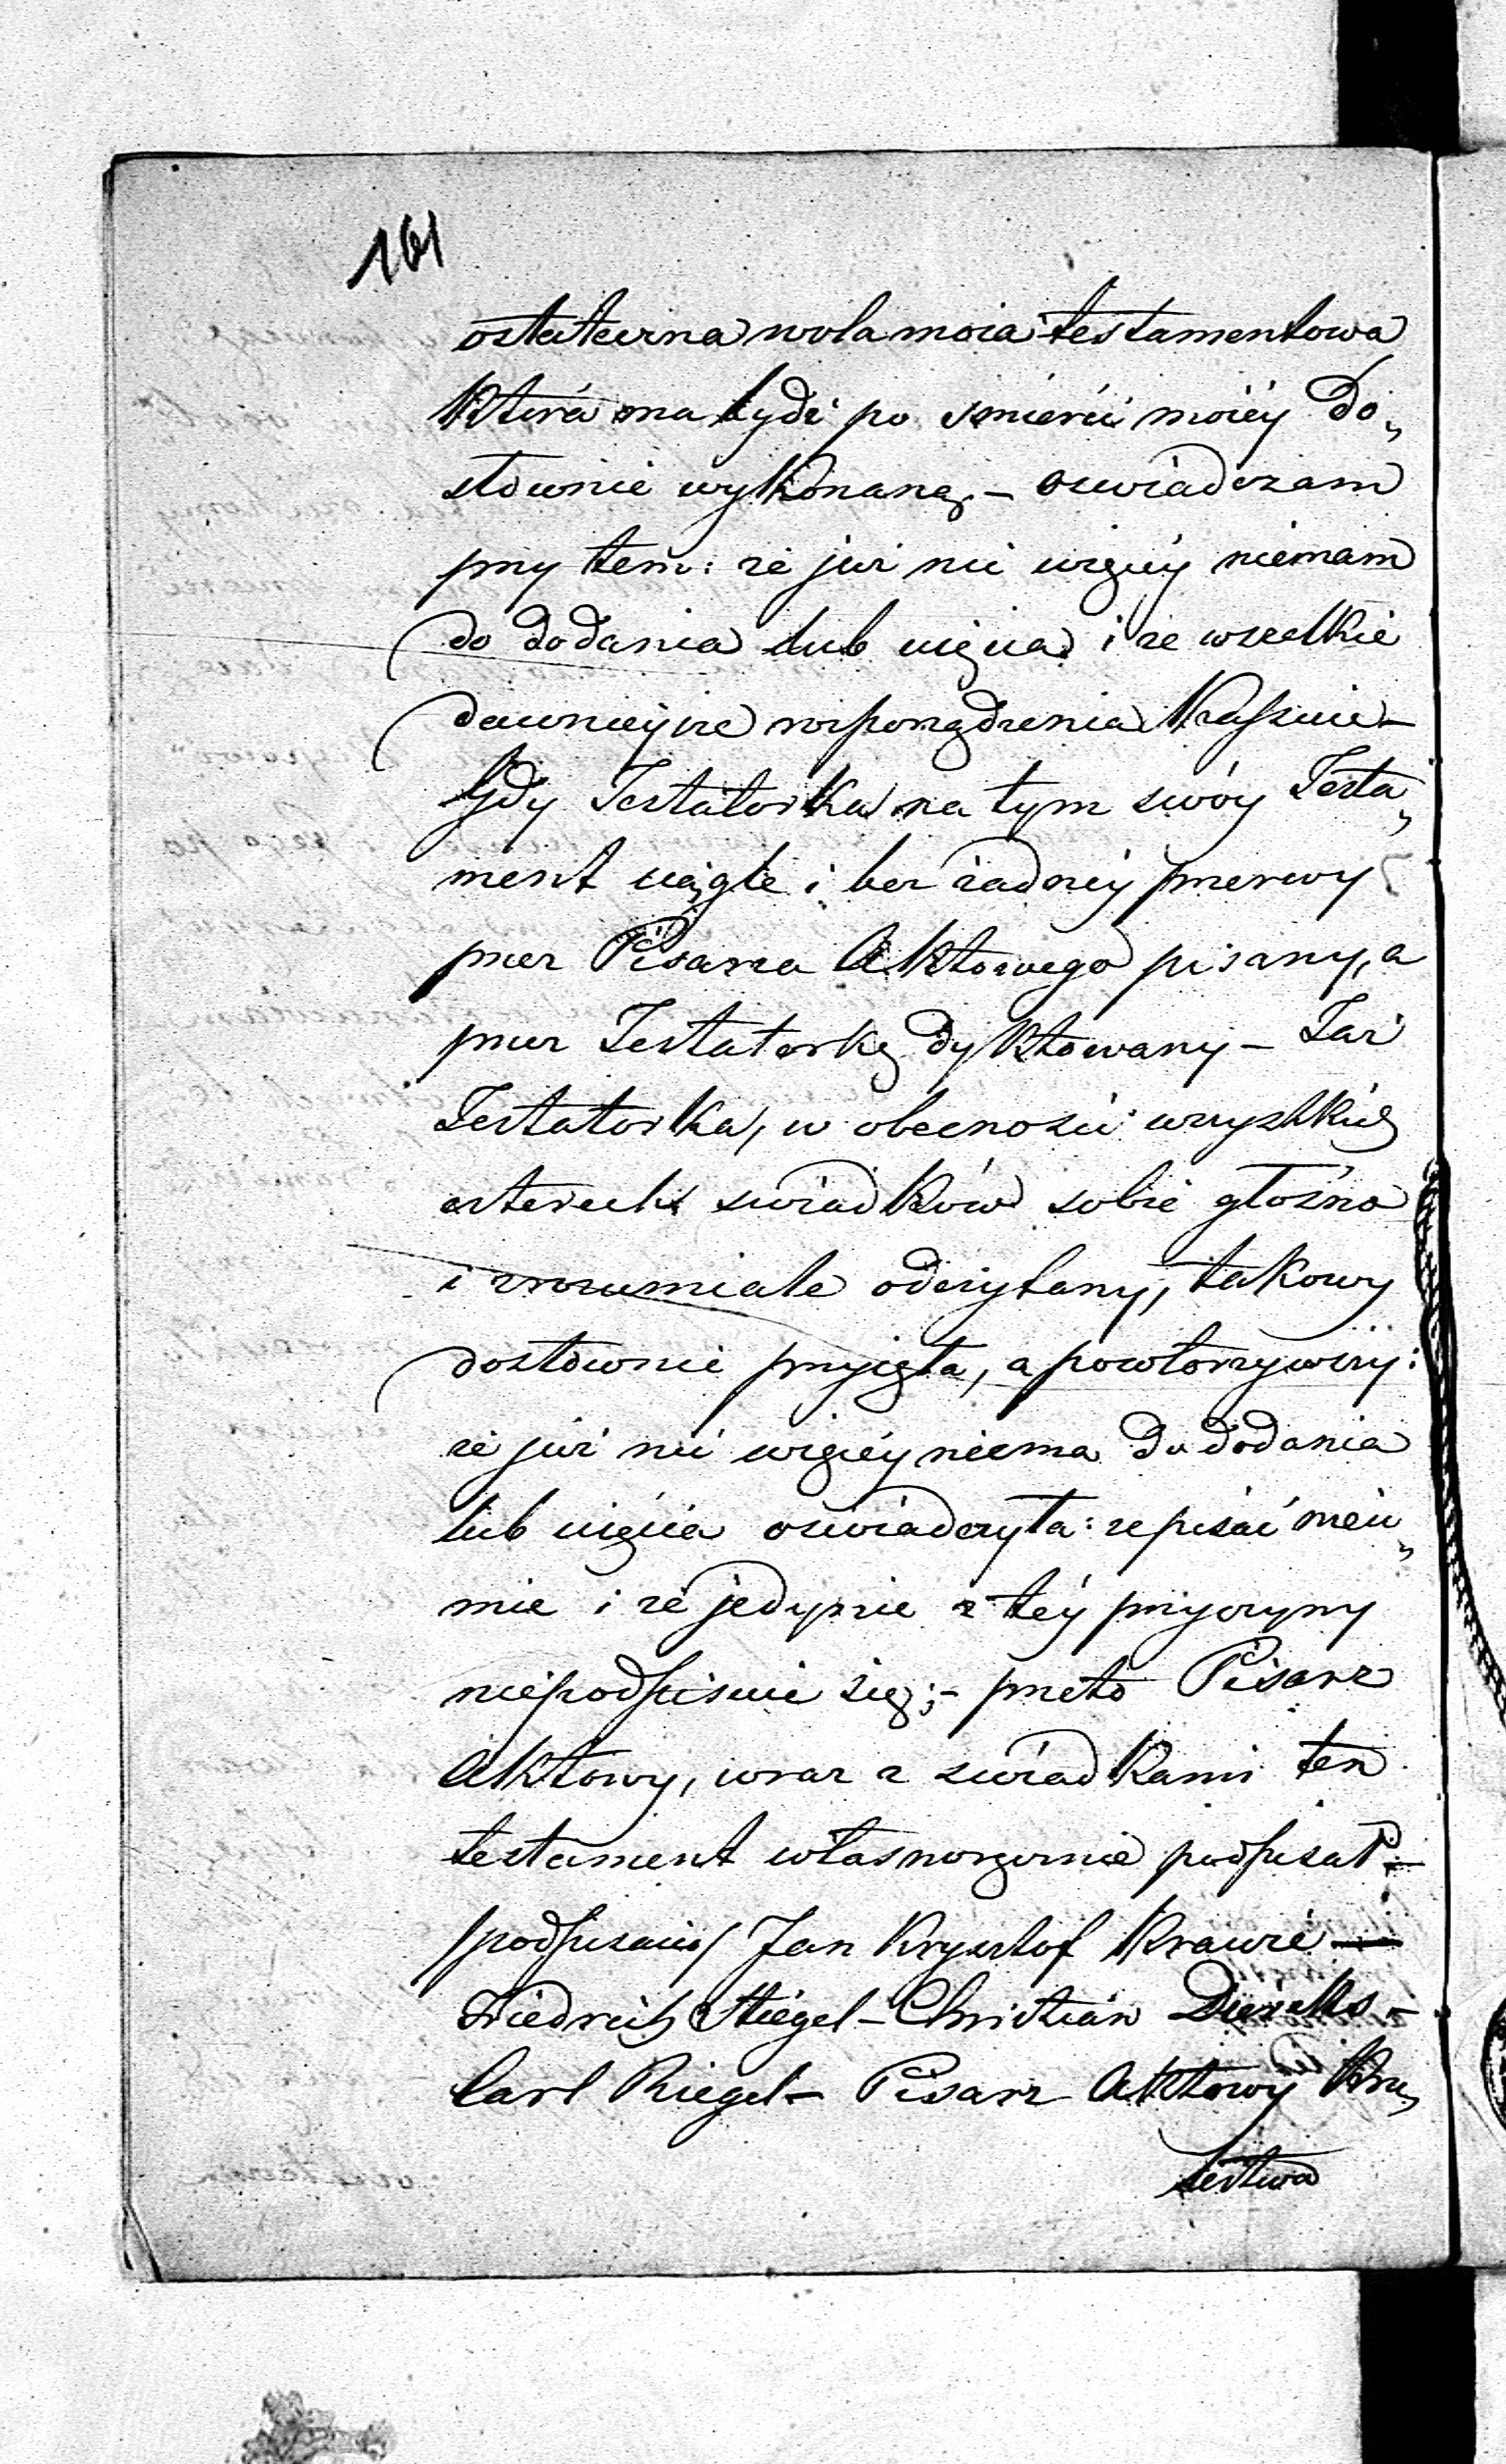 161
ostateczna wola moia testamentowa
która ma bydź po śmierci moiéy do„
słownie wykonaną. – Oswiadczam
przy tem: że już nic więcéy niemam
do dodania lub ujęcia i że wszelkie
dawnieysze rosporządzenia kassuie –
Gdy Testatorka na tym swóy Testa„
ment ciągle i bez żadnéy przerwy
przez Pisarza Aktowego pisany, a
przez Testatorkę dyktowany – Taż
Testatorka, w obecności wszystkich
czterech swiadków sobie głośno
i zrozumiale odczytany, takowy
dosłownie przyięła, a powtorzywszy:
że już nic więcéy niema do dodania
lub ujęcia oswiadczyła: że pisać nieu„
mie i że jedynie z téy przyczyny
niepodpisuie się; – przeto Pisarz
Aktowy, wraz z swiadkami ten
testament własnoręcznie podpisał –
/podpisano/ Jan Krysztof Krawié –
Friedrich Stiegel – Christian –
Carl Riegel – Pisarz Aktowy Kró„
lestwa